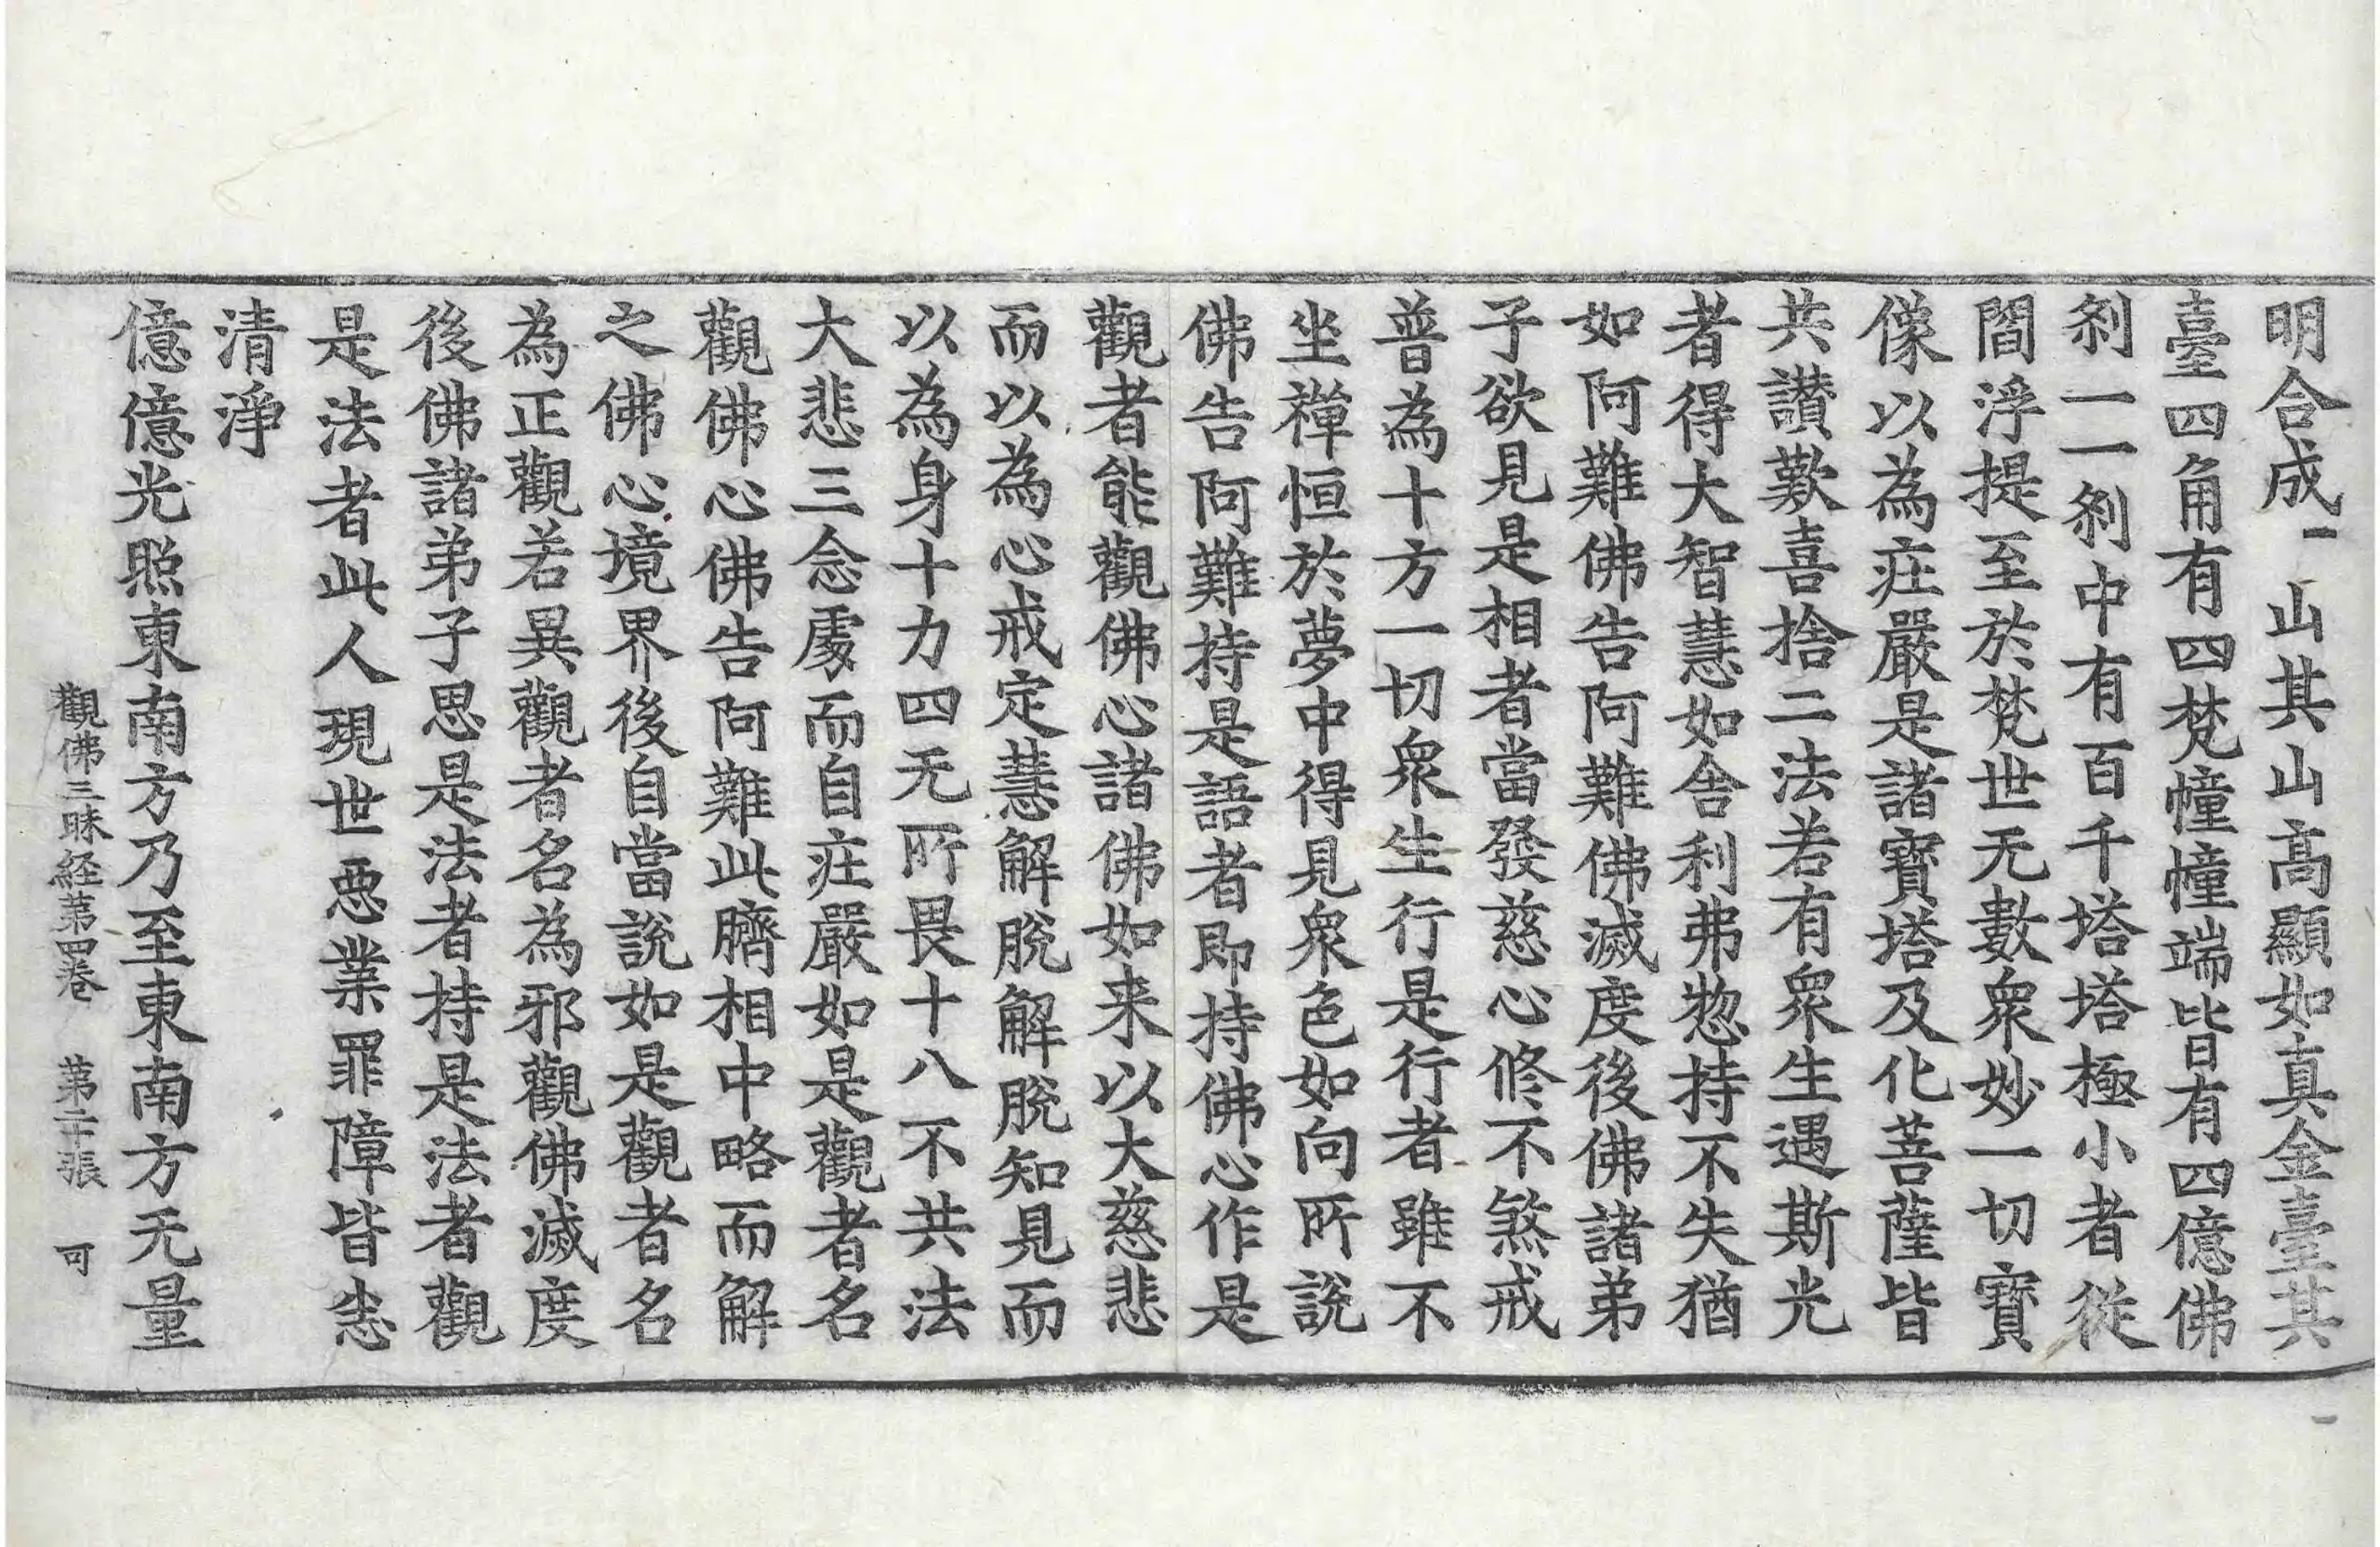 明合成一山其山高顯如真金臺其
臺四角有四梵幢幢端皆有四億佛
剎一一剎中有百千塔塔極小者從
閻浮提至於梵世无數衆妙一切寶
像以為莊嚴是諸寶塔及化菩薩皆
共讃歎喜捨二法若有衆生遇斯光
者得大智慧如舍利弗惣持不失猶
如阿難佛告阿難佛滅度後佛諸弟
子欲見是相者當發慈心修不煞戒
普為十方一切衆生行是行者雖不
坐禪恒於夢中得見衆色如向所說
佛告阿難持是語者即持佛心作是
觀者能觀佛心諸佛如来以大慈悲
而以為心戒定慧解脫解脫知見而
以為身十力四无所畏十八不共法
大悲三念處而自莊嚴如是觀者名
觀佛心佛告阿難此臍相中略而解
之佛心境界後自當說如是觀者名
為正觀若異觀者名為邪觀佛滅度
後佛諸弟子思是法者持是法者觀
是法者此人現世惡業罪障皆悉
清淨
億億光照東南方乃至東南方无量
觀佛三昧経第四卷 第二十張 可